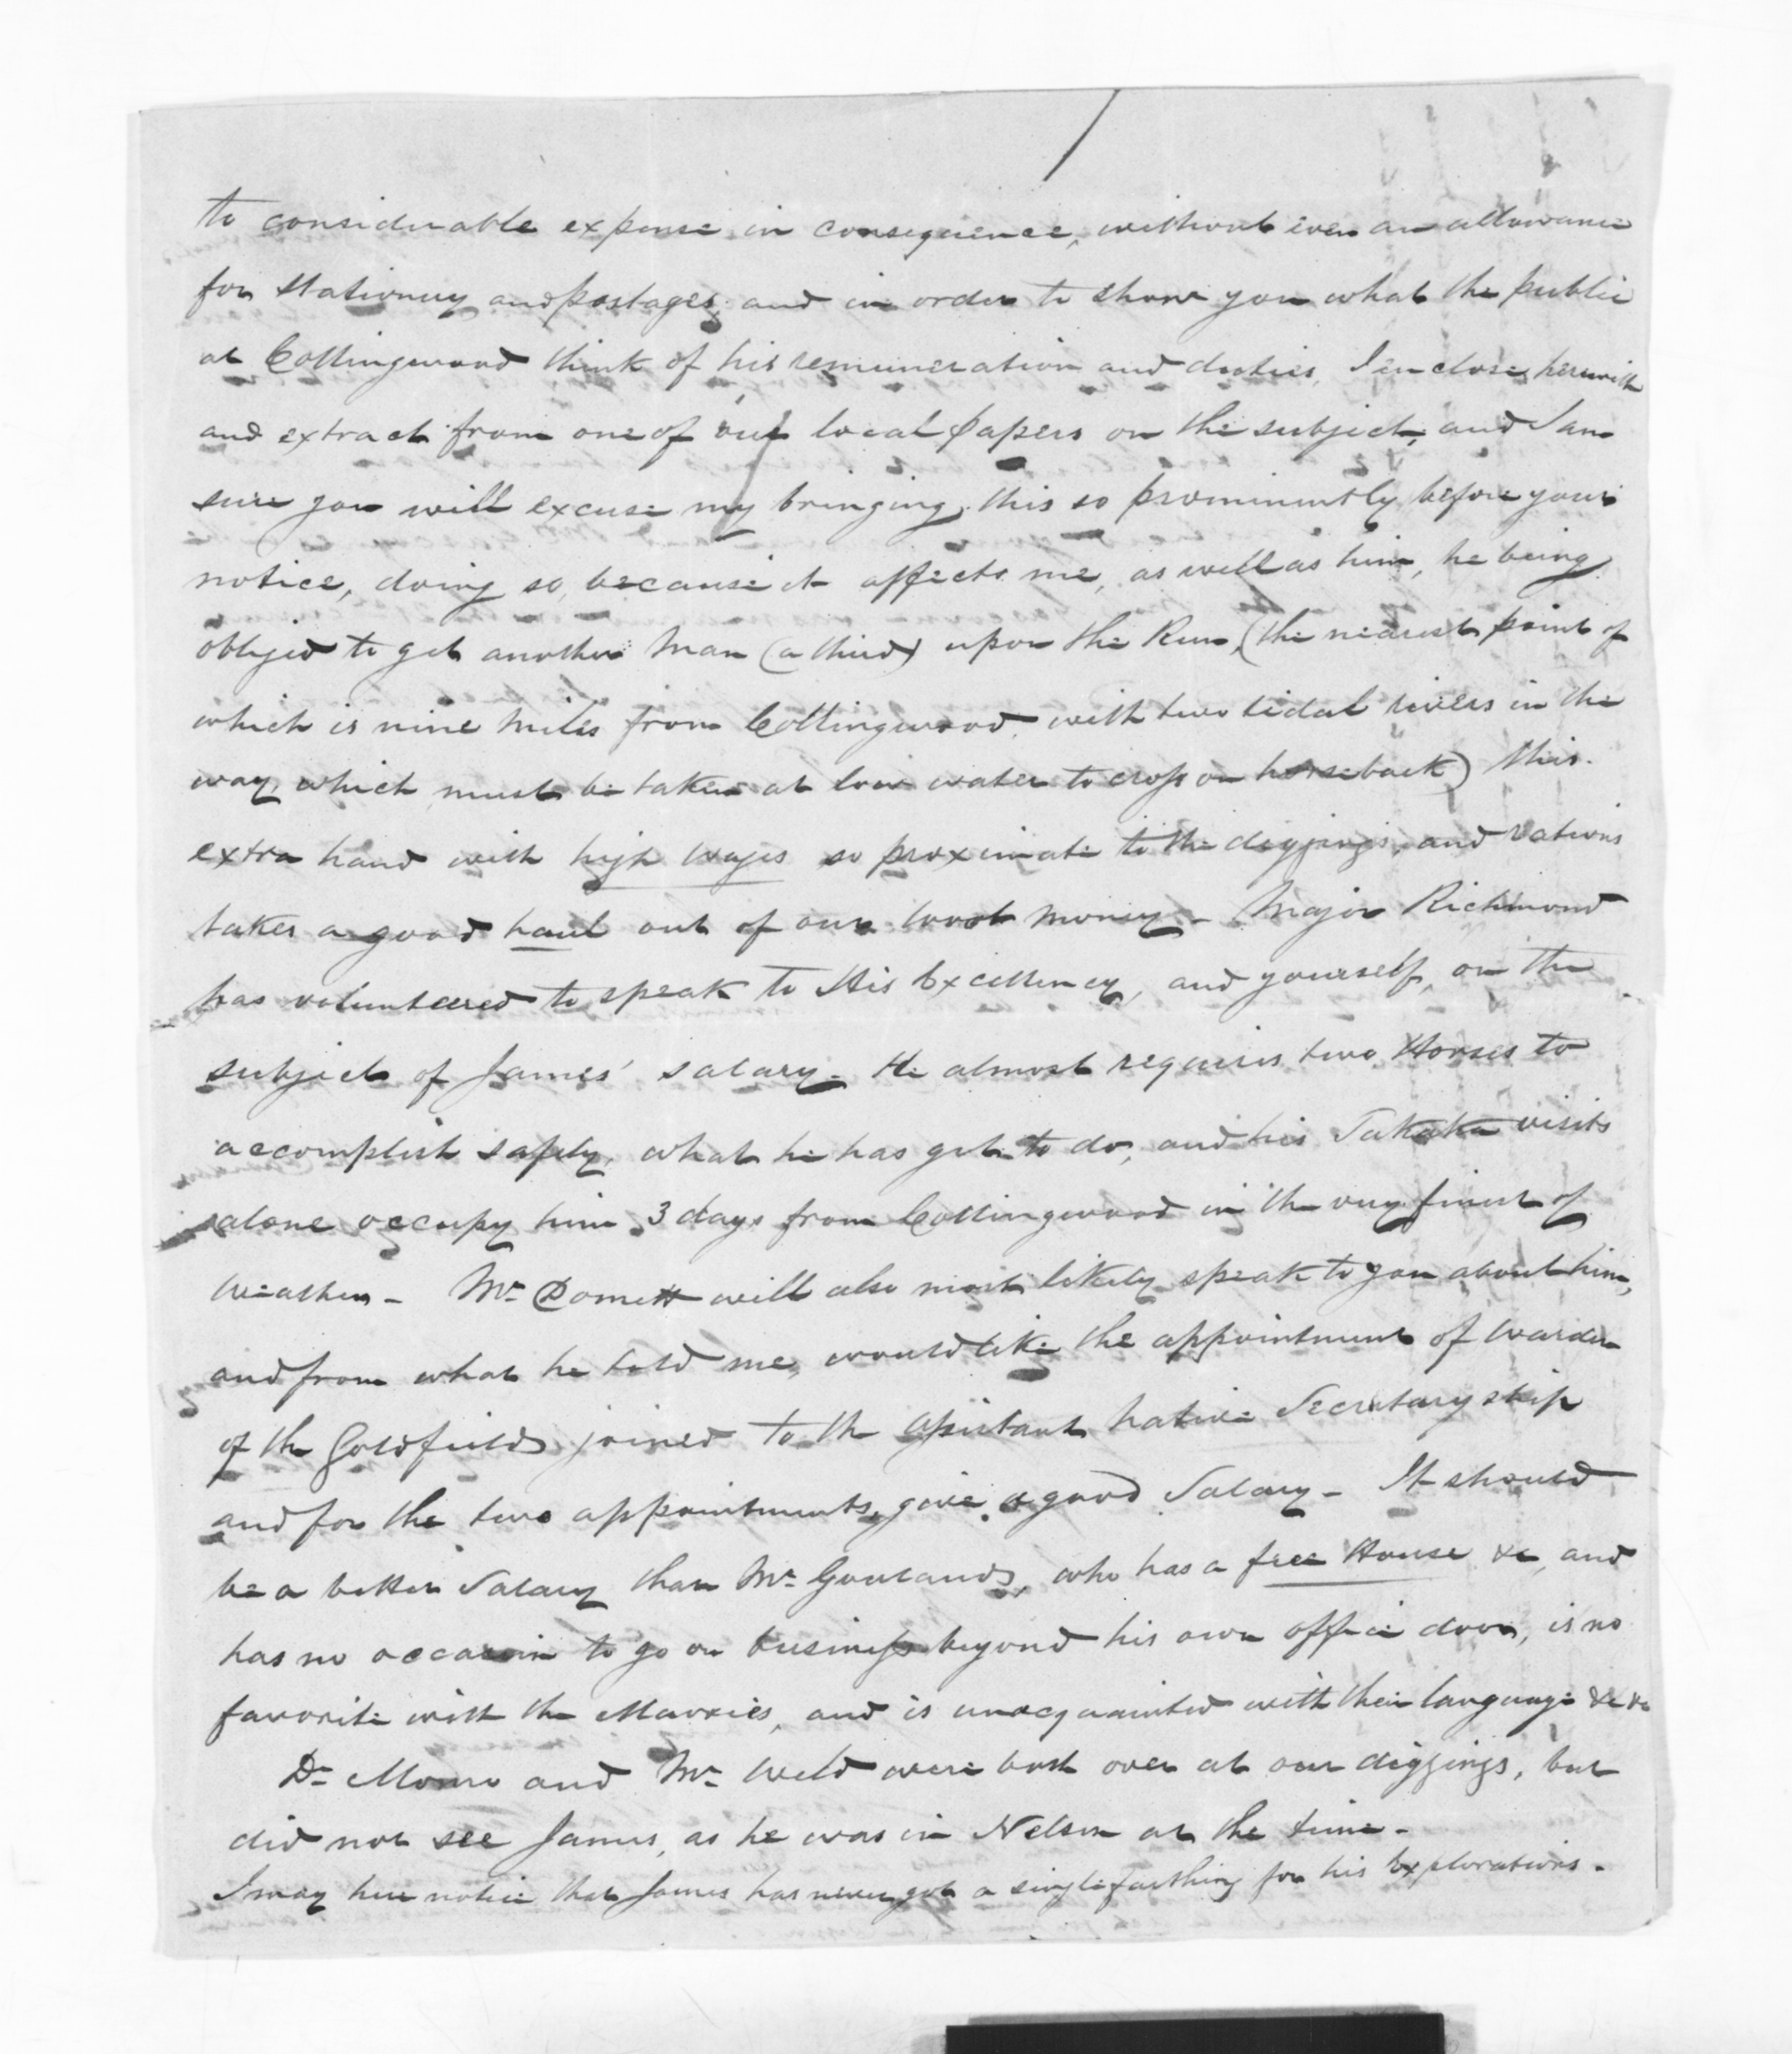 to considerable expense in consequence, without even an allowance
for stationery and postages, and in order to show you what the public
at Collingwood think of his remuneration and duties, I enclose herewith
and extract from one of our local papers on the subject, and I am
sure you will excuse my bringing this so prominently before your
notice, doing so, because it affects me, as well as him, he being
obliged to get another man (a third) upon the Run, (the nearest point of
which is nine miles from Collingwood, with two tidal rivers in the
way, which must be taken at low water to cross on horseback) this
extra hand with high wages so proximate to the diggings, and rations
takes a good haul out of our wool money - Major Richmond
has volunteered to speak to His Excellency, and yourself, on the
subject of James' salary. He almost requires two Horses to
accomplish safely, what he has got to do, and his Takaka visits
alone occupy him 3 days from Collingwood in the very finest of
weather - Mr Domett will also most likely speak to you about him,
and from what he told me, would like the appointment of Warden
of the Goldfields joined to the Assistant Native Secretaryship
and for the two appointments, give a good Salary - It should
be a better Salary than Mr Gouland's, who has a free House &c, and
has no occasion to go on business beyond his own office door, is no
favorite with the Maories, and is unacquainted with their language &c &c
Dr Monro and Mr Weld were both over at our diggings, but
did not see James, as he was in Nelson at the time -
I may here notice that James has never got a single farthing for his explorations.